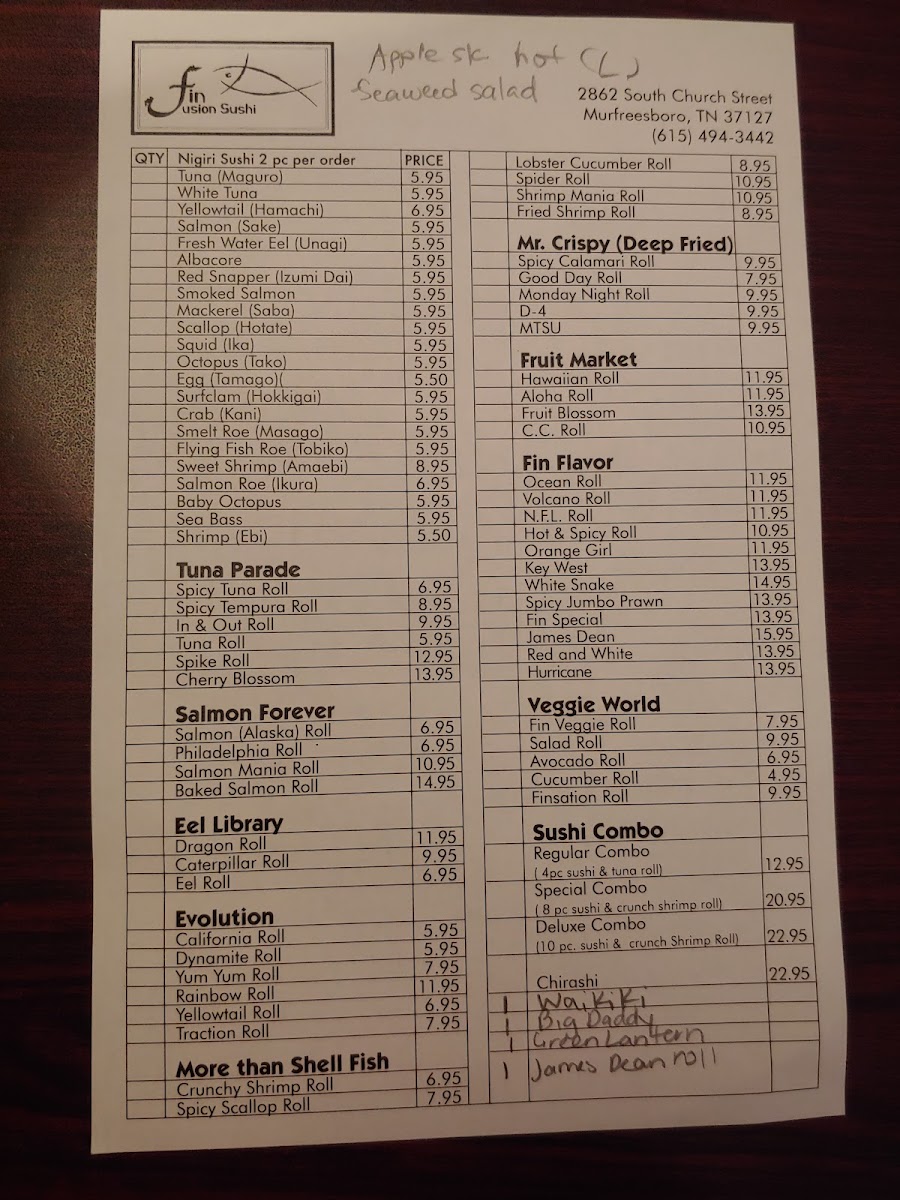 Fin
Fusion Sushi
Apple sk hot (L)
Seaweed salad
2862 South Church Street
Murfreesboro, TN 37127
(615) 494-3442
QTY Nigiri Sushi 2 pc per order PRICE
Tuna (Maguro) 5.95
White Tuna 5.95
Yellowtail (Hamachi) 6.95
Salmon (Sake) 5.95
Fresh Water Eel (Unagi) 5.95
Albacore 5.95
Red Snapper (Izumi Dai) 5.95
Smoked Salmon 5.95
Mackerel (Saba) 5.95
Scallop (Hotate) 5.95
Squid (Ika) 5.95
Octopus (Tako) 5.95
Egg (Tamago)( 5.50
Surfclam (Hokkigai) 5.95
Crab (Kani) 5.95
Smelt Roe (Masago) 5.95
Flying Fish Roe (Tobiko) 5.95
Sweet Shrimp (Amaebi) 8.95
Salmon Roe (Ikura) 6.95
Baby Octopus 5.95
Sea Bass 5.95
Shrimp (Ebi) 5.50
Tuna Parade
Spicy Tuna Roll 6.95
Spicy Tempura Roll 8.95
In & Out Roll 9.95
Tuna Roll 5.95
Spike Roll 12.95
Cherry Blossom 13.95
Salmon Forever
Salmon (Alaska) Roll 6.95
Philadelphia Roll 6.95
Salmon Mania Roll 10.95
Baked Salmon Roll 14.95
Eel Library
Dragon Roll 11.95
Caterpillar Roll 9.95
Eel Roll 6.95
Evolution
California Roll 5.95
Dynamite Roll 5.95
Yum Yum Roll 7.95
Rainbow Roll 11.95
Yellowtail Roll 6.95
Traction Roll 7.95
More than Shell Fish
Crunchy Shrimp Roll 6.95
Spicy Scallop Roll 7.95
Lobster Cucumber Roll 8.95
Spider Roll 10.95
Shrimp Mania Roll 10.95
Fried Shrimp Roll 8.95
Mr. Crispy (Deep Fried)
Spicy Calamari Roll 9.95
Good Day Roll 7.95
Monday Night Roll 9.95
D-4 9.95
MTSU 9.95
Fruit Market
Hawaiian Roll 11.95
Aloha Roll 11.95
Fruit Blossom 13.95
C.C. Roll 10.95
Fin Flavor
Ocean Roll 11.95
Volcano Roll 11.95
N.F.L. Roll 11.95
Hot & Spicy Roll 10.95
Orange Girl 11.95
Key West 13.95
White Snake 14.95
Spicy Jumbo Prawn 13.95
Fin Special 13.95
James Dean 15.95
Red and White 13.95
Hurricane 13.95
Veggie World
Fin Veggie Roll 7.95
Salad Roll 9.95
Avocado Roll 6.95
Cucumber Roll 4.95
Finsation Roll 9.95
Sushi Combo
Regular Combo
( 4pc sushi & tuna roll) 12.95
Special Combo
( 8 pc sushi & crunch shrimp roll) 20.95
Deluxe Combo
(10 pc. sushi & crunch Shrimp Roll) 22.95
Chirashi 22.95
1 Waikiki
1 Big Daddy
1 Green Lantern
1 James Dean roll